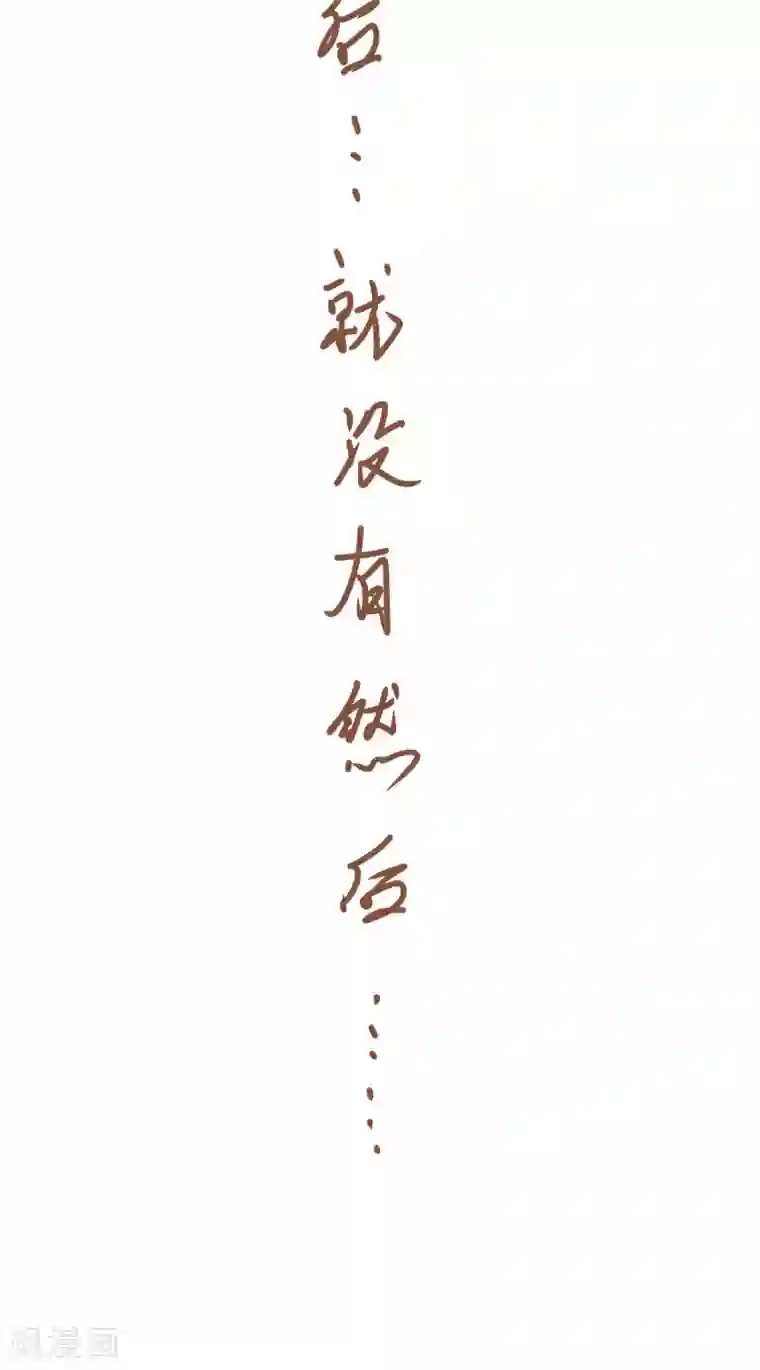 后…就没有然后……
飒漫画